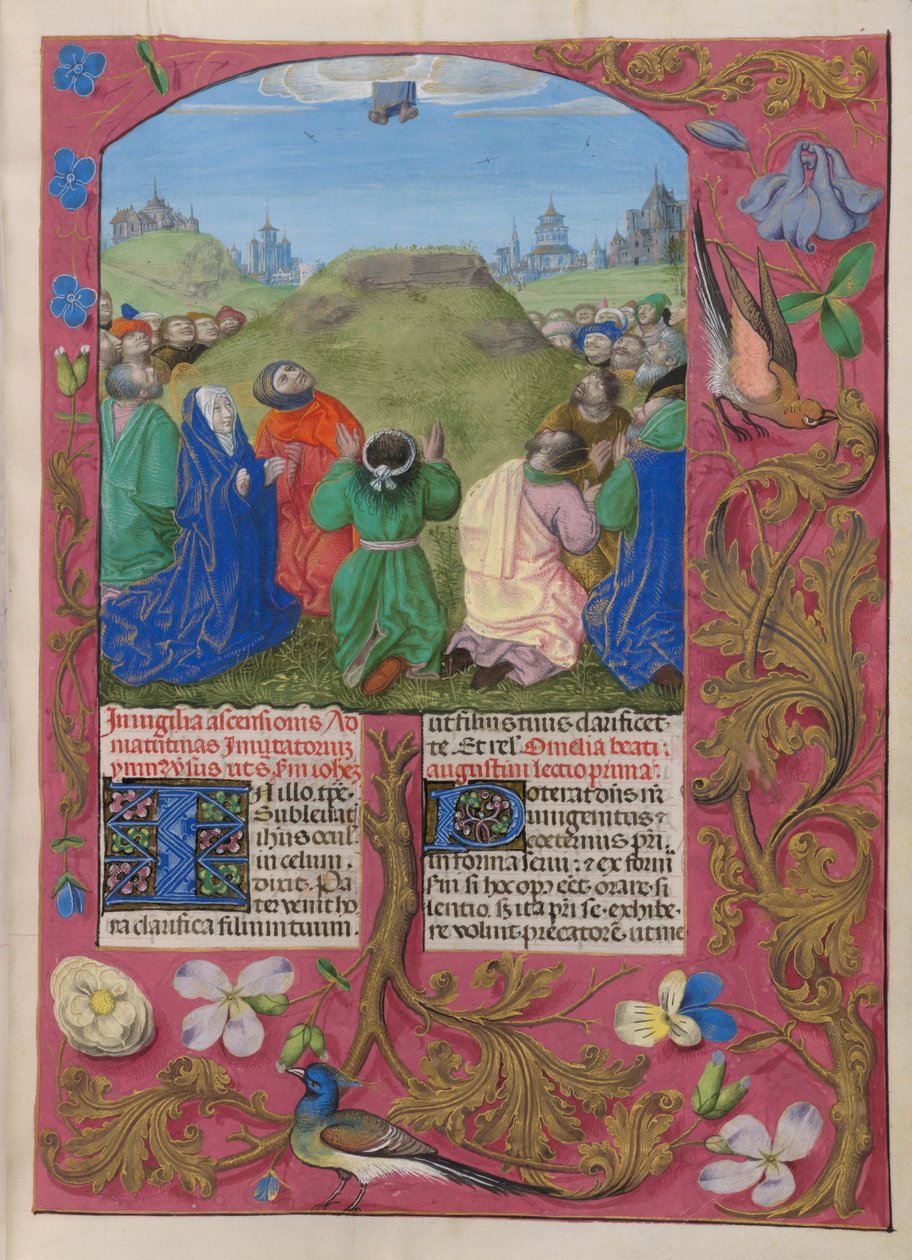 In vigilia ascensionis Ad
matutinas Inuitatoriuz
ymn? Vsus ut s. Sm iohez
In illo tpe
Subleuatis
ihus ocul'
in celum.
dixit. Pa
ter venit ho
ra clarifica filium tuum.
ut filius tuus clarificet
te. Et rel'. Omelia beati
augustini lectio prima.
Poterat dns nr
unigenitus &
coeternus pri
in forma serui: & ex forma
serui si hoc op' eet. orare si
lentio. Sz ita pri se exhibe
re voluit precatore. ut me